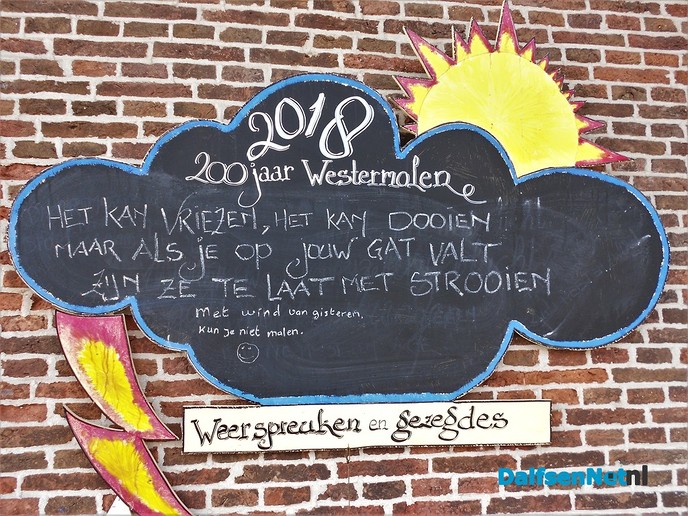 2018
200 jaar Westermolen
HET KAN VRIEZEN, HET KAN DOOIEN
MAAR ALS JE OP JOUW GAT VALT
ZIJN ZE TE LAAT MET STROOIEN
Met wind van gisteren,
kun je niet malen.
Weerspreuken en gezegdes
DalfsenNet.nl